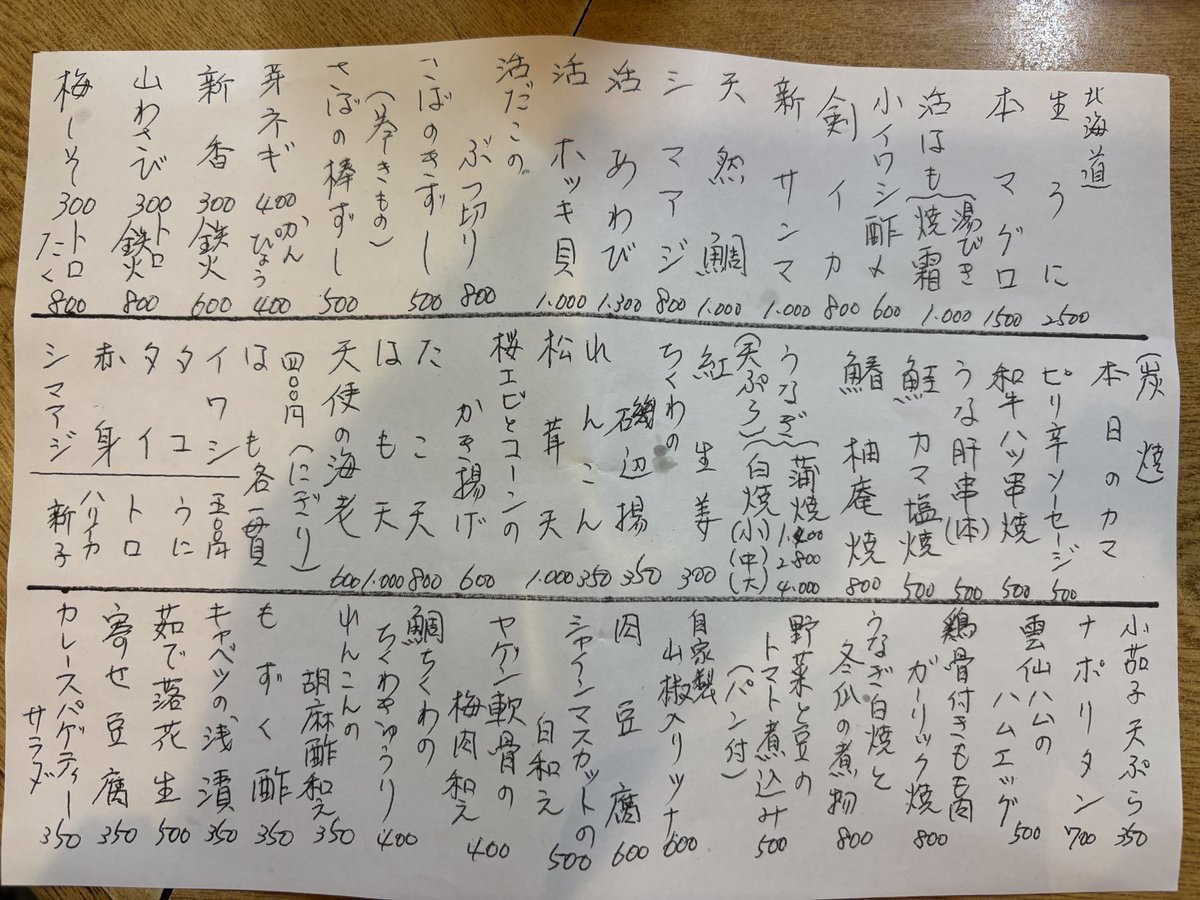 北海道
生うに 2500
本マグロ 1500
活はも(湯びき
焼霜 1.000
小イワシ酢〆 600
剣イカ 800
新サンマ 1.000
天然鯛 1.000
シマアジ 800
活あわび 1.300
活ホッキ貝 1.000
活だこの
ぶつ切り 800
こぼのきずし 500
(巻きもの)
さばの棒ずし 500
芽ネギ 400 かんぴょう 400
新香 300 鉄火 600
山わさび 300 トロ鉄火 800
梅しそ 300 トロたく 800
(炭焼)
本日のカマ
ピリ辛ソーセージ 500
和牛ハツ串焼 500
うな肝串(一本) 500
鮭カマ塩焼 500
鰆柚庵焼 800
うなぎ(蒲焼
白焼 (小) 1.400 (中) 2.800 (大) 4.000
(天ぷら)
紅生姜 300
ちくわの
磯辺揚 350
れんこん 350
松茸天 1.000
桜エビとコーンの
かき揚げ 600
たこ天 800
はも天 1.000
天使の海老 600
(にぎり)
四〇〇円
はも各一貫
イワシ 五〇〇円
タコ うに
タイ トロ
赤身 ハリイカ
シマアジ 新子
小茄子天ぷら 350
ナポリタン 700
雲仙ハムの
ハムエッグ 500
鶏骨付きもも肉
ガーリック焼 800
うなぎ白焼と
冬瓜の煮物 800
野菜と豆の
トマト煮込み 500
(パン付)
自家製
山椒入りツナ 600
肉豆腐 600
シャインマスカットの
白和え 500
ヤゲン軟骨の
梅肉和え 400
鯛ちくわの
ちくわきゅうり 400
れんこんの
胡麻酢和え 350
もずく酢 350
キャベツの浅漬 350
茹で落花生 500
寄せ豆腐 350
カレースパゲティー
サラダ 350